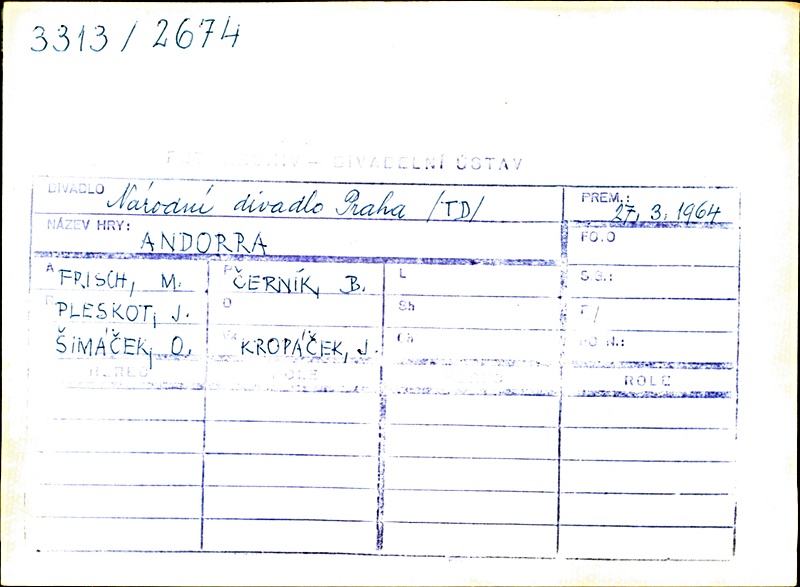 3313 / 2674
DIVADELNÍ ÚSTAV
DIVADLO Národní divadlo Praha /TD/ PREM.: 27. 3. 1964
NÁZEV HRY: ANDORRA FO.O
A FRISCH, M. P ČERNÍK, B. L S.S.:
PLESKOT, J. O Sh F/
ŠIMÁČEK, O. KROPÁČEK, J. Ch
HEREC ROLE ROLE